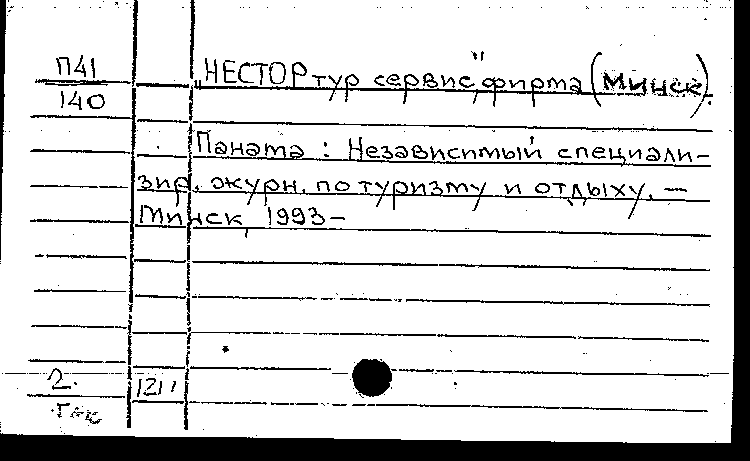 П41
140
"НЕСТОР тур сервис", фирма (Минск).
Панама : Независимый специали-
зир. журн. по туризму и отдыху. —
Минск, 1993 –
2.
1211